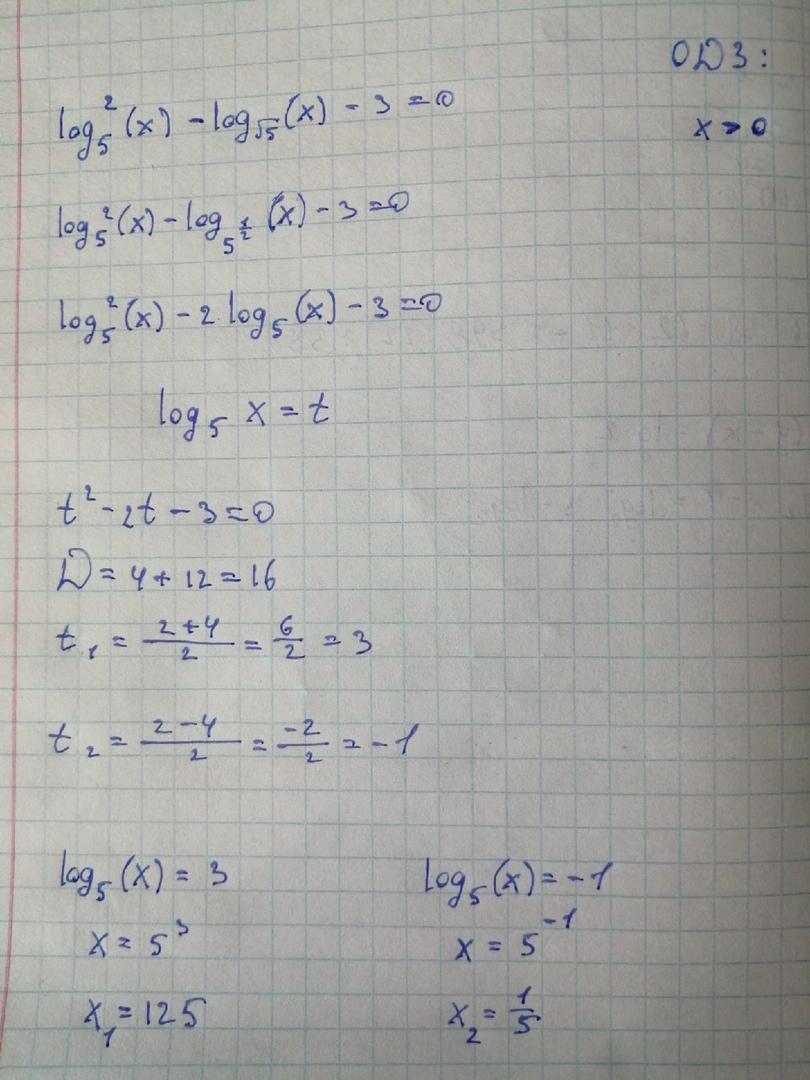 ОДЗ:
log₅²(x) - log_√5(x) - 3 = 0
x > 0
log₅²(x) - log_5^(1/2) (x) - 3 = 0
log₅²(x) - 2 log₅(x) - 3 = 0
log₅ x = t
t² - 2t - 3 = 0
D = 4 + 12 = 16
t₁ = (2+4)/2 = 6/2 = 3
t₂ = (2-4)/2 = -2/2 = -1
log₅(x) = 3 log₅(x) = -1
x = 5³ x = 5⁻¹
x₁ = 125 x₂ = 1/5